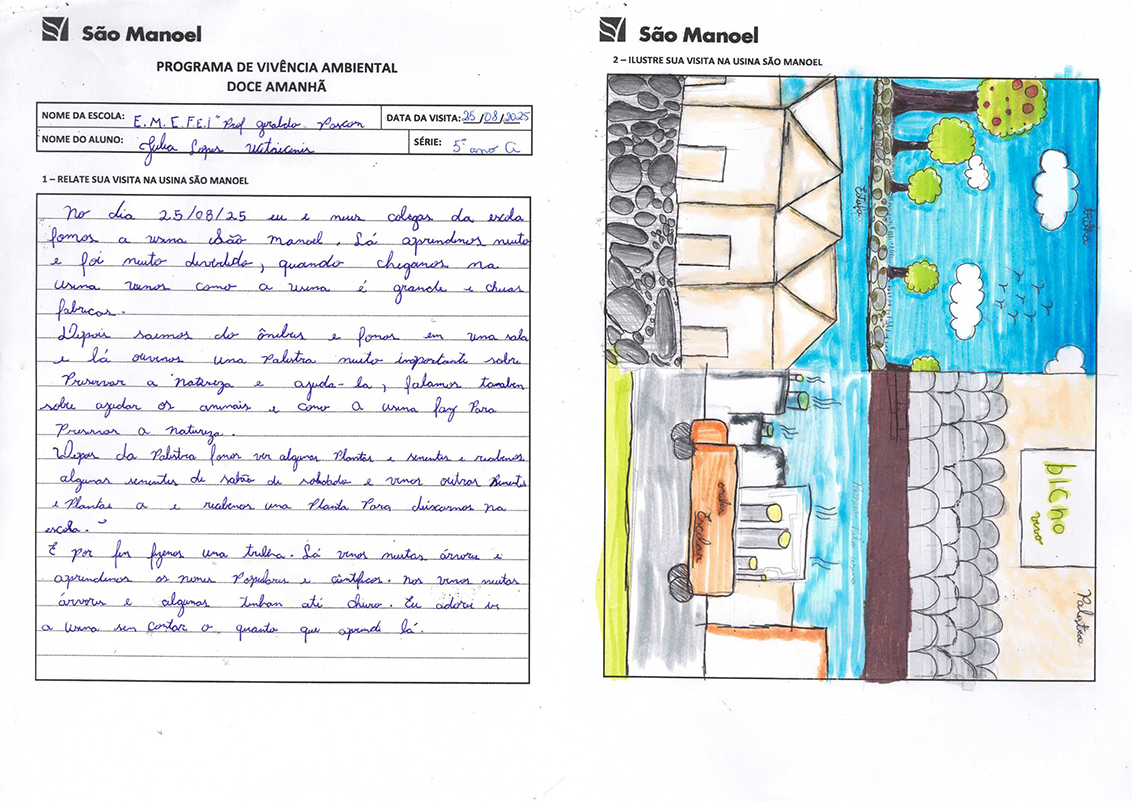 São Manoel
PROGRAMA DE VIVÊNCIA AMBIENTAL
DOCE AMANHÃ
NOME DA ESCOLA: E.M.E.F.E.I "Prof Geraldo Pascon
DATA DA VISITA: 25/08/2025
NOME DO ALUNO: Julia Lopes
SÉRIE: 5º ano A
1 – RELATE SUA VISITA NA USINA SÃO MANOEL
No dia 25/08/25 eu e meus colegas da escola
fomos a usina São Manoel. Lá aprendemos muito
e foi muito divertido, quando chegamos na
usina vimos como a usina é grande e chuas
fabricas.
Depois saimos do ônibus e fomos em uma sala
e lá ouvimos uma Palestra muito importante sobre
Preservar a natureza e ajuda-la, falamos tambem
sobre ajudar os animais e como a usina faz Para
Preservar a natureza.
Depois da Palestra fomos ver algumas Plantas e sementes e recebemos
algumas sementes de sabão de soldado e vimos outras sementes
e Plantas a e recebemos uma Planta Para deixarmos na
escola.
E por fim fizemos uma trilha. Lá vimos muitas árvores e
aprendemos os nomes Populares e científicos. nos vimos muitas
árvores e algumas tinham até churo. Eu adorei ir
a usina sem contar o quanto que aprendi lá.
São Manoel
2 – ILUSTRE SUA VISITA NA USINA SÃO MANOEL
Estufa
trilha
onibus
Escolar
bicho
vivo
Palestra